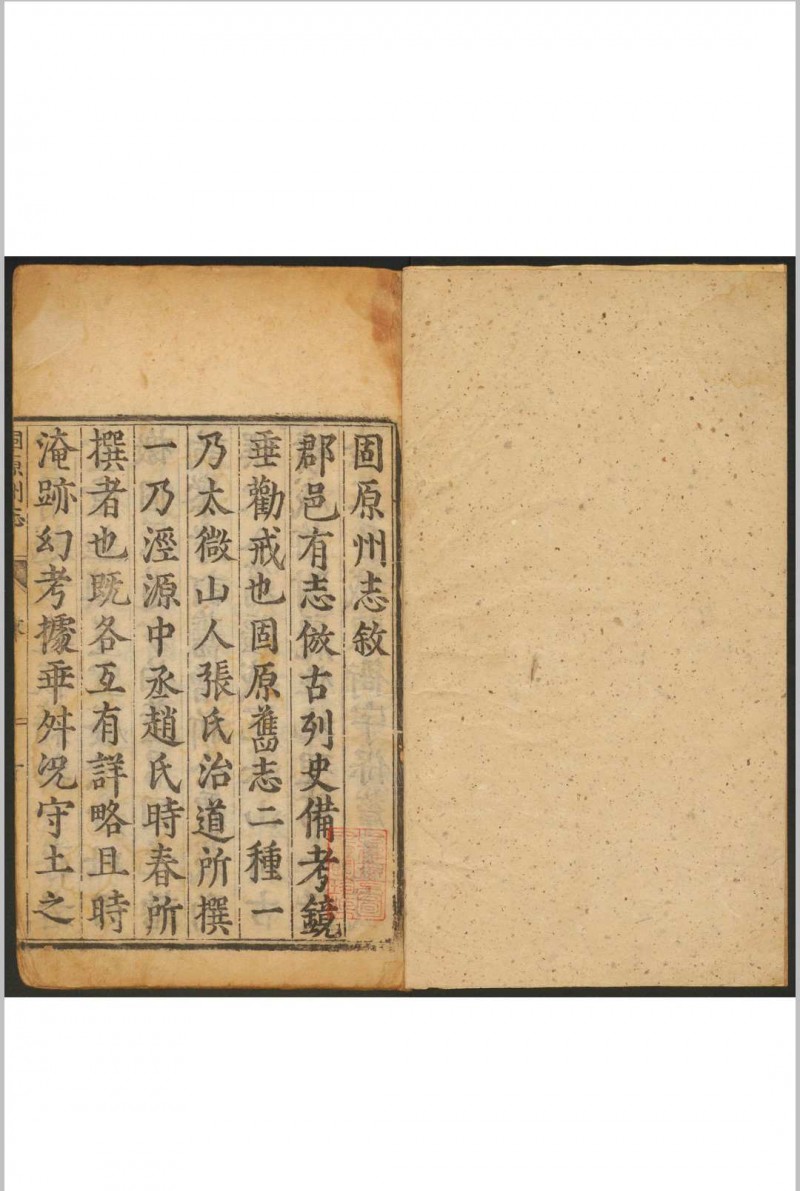 固原州志敘
郡邑有志倣古列史備考鏡
垂勸戒也固原舊志二種一
乃太微山人張氏治道所撰
一乃涇源中丞趙氏時春所
撰者也既各互有詳略且時
淹跡幻考據乖舛况守土之
固原州志